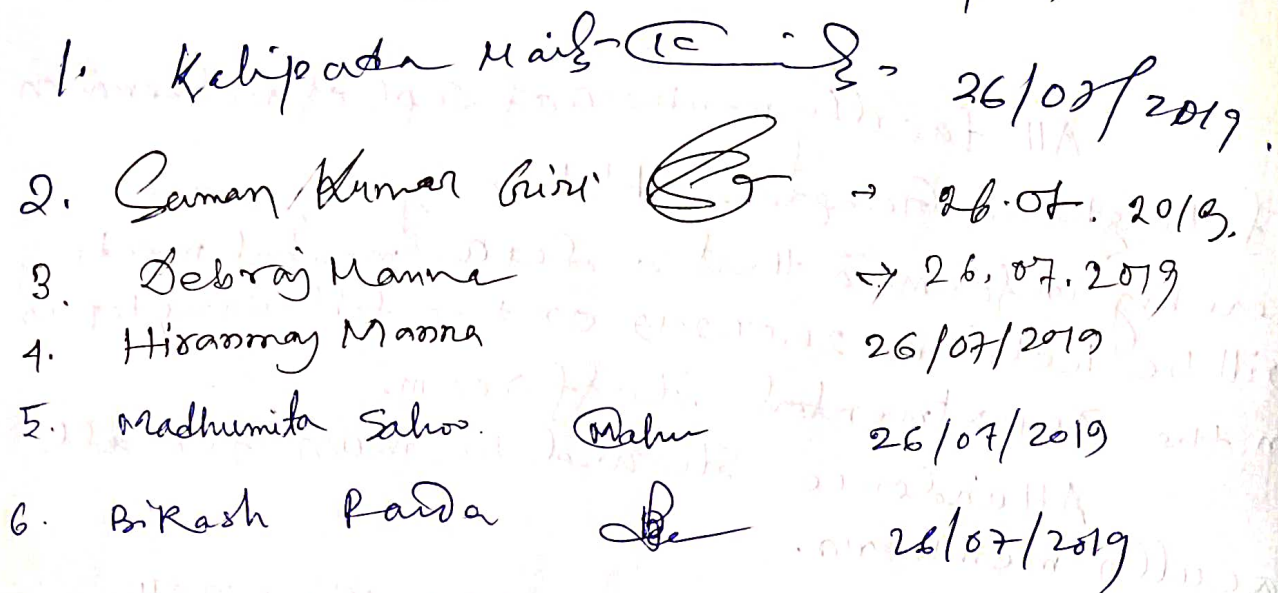 1. Kalipada Maity 26/07/2019.
2. Suman Kumar Giri → 26.07.2019.
3. Debraj Manna → 26.07.2019
4. Hiranmay Manna 26/07/2019
5. Madhumita Sahoo. 26/07/2019
6. Bikash Panda 26/07/2019